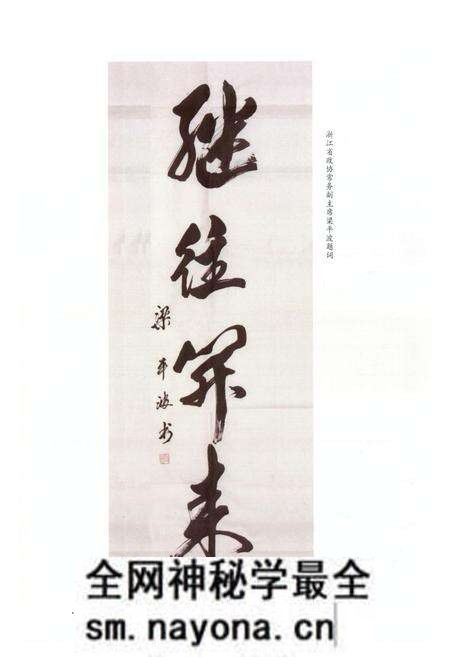 浙江省政协常务副主席梁平波题词
继往开来
梁平波书
全网神秘学最全
sm.nayona.cn